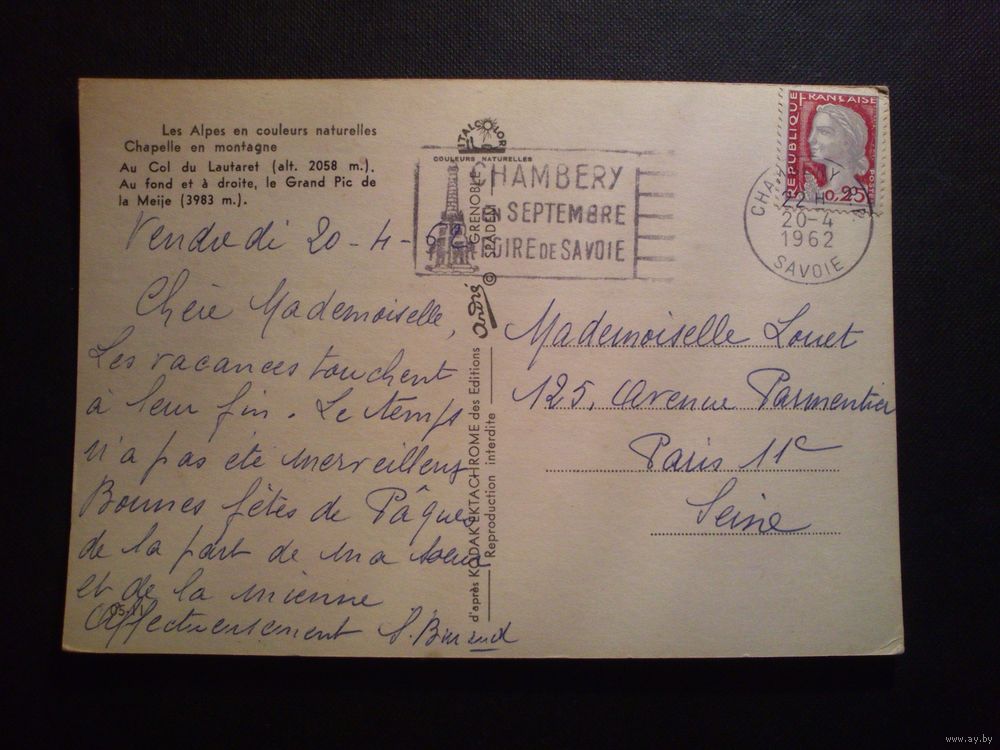 Les Alpes en couleurs naturelles
Chapelle en montagne
Au Col du Lautaret (alt. 2058 m.).
Au fond et à droite, le Grand Pic de
la Meije (3983 m.).
Vendredi 20-4-62
Chère Mademoiselle,
Les vacances touchent
à leur fin. Le temps
n'a pas été merveilleux
Bonnes fêtes de Pâques
de la part de ma soeur
et de la mienne
Affectueusement
ITALCOLOR
COULEURS NATURELLES
GRENOBLE
SPADEM
©
André
d'après KODAK EKTACHROME des Editions
Reproduction interdite
CHAMBERY
EN SEPTEMBRE
FOIRE DE SAVOIE
REPUBLIQUE FRANÇAISE
POSTES
0,25
CHAMBERY
22 H
20-4
1962
SAVOIE
Mademoiselle Louet
125, Avenue Parmentier
Paris 11e
Seine
www.ay.by